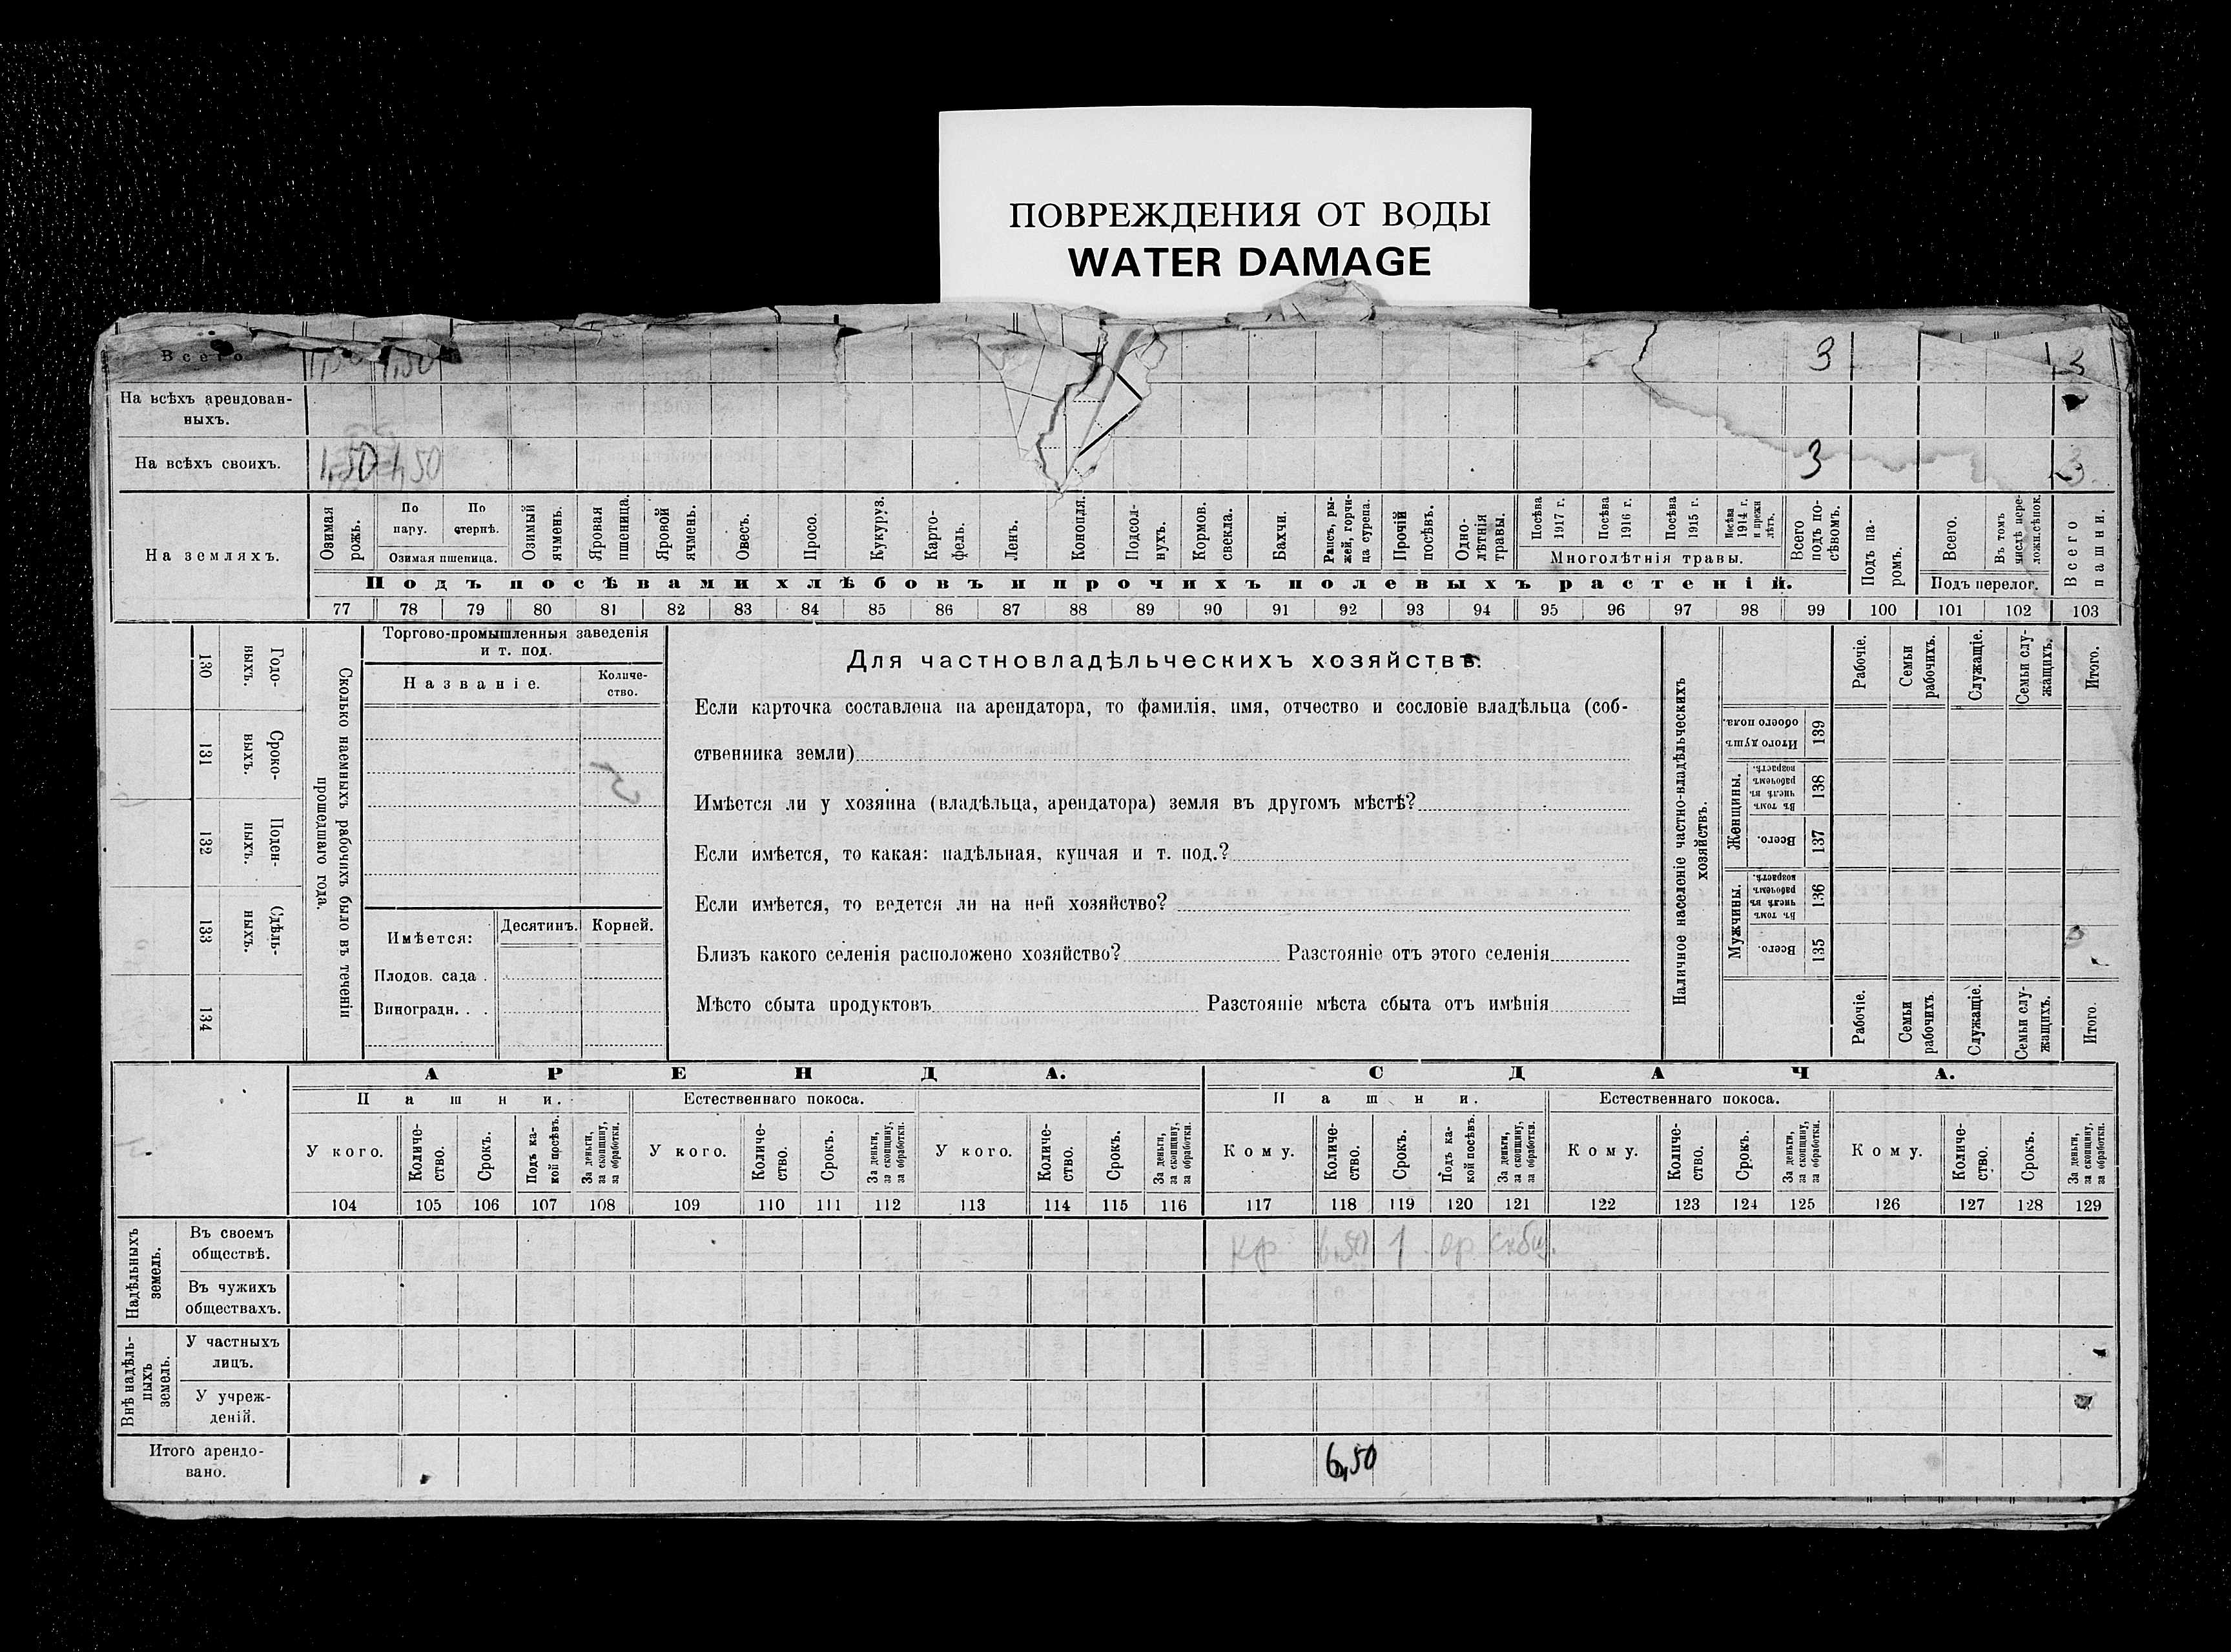 ПОВРЕЖДЕНИЯ ОТ ВОДЫ
WATER DAMAGE
Всего 1,50 1,50 3 3
На всѣхъ арендован-
ныхъ.
На всѣхъ своихъ. 1,50 1,50 3 3
На земляхъ.
Озимая рожь.
По пару.
По стернѣ.
Озимая пшеница.
Озимый ячмень.
Яровая пшеница.
Яровой ячмень.
Овесъ.
Просо.
Кукуруз.
Карто-
фель.
Ленъ.
Конопля.
Подсол-
нухъ.
Кормов.
свекла.
Бахчи.
Рапсъ, ры-
жей, горчи-
ца сурепа.
Прочій
посѣвъ.
Одно-
лѣтнія
травы.
Посѣва
1917 г.
Посѣва
1916 г.
Посѣва
1915 г.
Посѣва
1914 г.
и прежн
лѣтъ.
Многолѣтнія травы.
Всего
подъ по-
сѣвомъ.
Подъ па-
ромъ.
Всего.
Въ томъ
числѣ пере-
ложн.сѣнок.
Подъ перелог.
Всего
пашни.
Подъ посѣвами хлѣбовъ и прочихъ полевыхъ растеній.
77 78 79 80 81 82 83 84 85 86 87 88 89 90 91 92 93 94 95 96 97 98 99 100 101 102 103
130 Годо-
выхъ.
131 Сроко-
выхъ.
132 Поден-
ныхъ.
133 Сдѣль-
ныхъ.
134
Сколько наемныхъ рабочихъ было въ теченіи
прошедшаго года.
Торгово-промышленныя заведенія
и т. под.
Названіе.
Количе-
ство.
5
Имѣется:
Десятинъ.
Корней.
Плодов. сада .
Виноградн. . .
Для частновладѣльческихъ хозяйствъ.
Если карточка составлена на арендатора, то фамилія, имя, отчество и сословіе владѣльца (соб-
ственника земли)
Имѣется ли у хозяина (владѣльца, арендатора) земля въ другомъ мѣстѣ?
Если имѣется, то какая: надѣльная, купчая и т. под.?
Если имѣется, то ведется ли на ней хозяйство?
Близъ какого селенія расположено хозяйство? Разстояніе отъ этого селенія
Мѣсто сбыта продуктовъ Разстояніе мѣста сбыта отъ имѣнія
Наличное населеніе частно-владѣльческихъ
хозяйствъ.
Рабочіе.
Семьи
рабочихъ.
Служащіе.
Семьи слу-
жащихъ.
Итого.
Итого душъ
обоего пола.
139
Женщины.
Въ томъ
числѣ въ
рабочемъ
возрастѣ.
138
Всего.
137
Мужчины.
Въ томъ
числѣ въ
рабочемъ
возрастѣ.
136
Всего.
135
Рабочіе.
Семьи
рабочихъ.
Служащіе.
Семьи слу-
жащихъ.
Итого.
АРЕНДА.
СДАЧА.
Пашни.
Естественнаго покоса.
Пашни.
Естественнаго покоса.
У кого.
Количе-
ство.
Срокъ.
Подъ ка-
кой посѣвъ.
За деньги,
за скопщину,
за обработки.
У кого.
Количе-
ство.
Срокъ.
За деньги,
за скопщину,
за обработки.
У кого.
Количе-
ство.
Срокъ.
За деньги,
за скопщину,
за обработки.
Кому.
Количе-
ство.
Срокъ.
Подъ ка-
кой посѣвъ.
За деньги,
за скопщину,
за обработки.
Кому.
Количе-
ство.
Срокъ.
За деньги,
за скопщину,
за обработки.
Кому.
Количе-
ство.
Срокъ.
За деньги,
за скопщину,
за обработки.
104 105 106 107 108 109 110 111 112 113 114 115 116 117 118 119 120 121 122 123 124 125 126 127 128 129
Надѣльныхъ
земель.
Въ своемъ
обществѣ.
кр 6,50 1
Въ чужихъ
обществахъ.
Внѣ надѣль-
ныхъ
земель.
У частныхъ
лицъ.
У учреж-
деній.
Итого арендо-
вано.
6,50